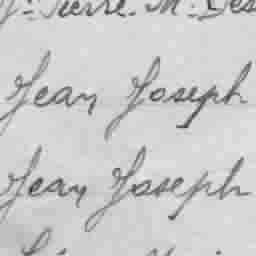 Pierre. M. Des
Jean Joseph
Jean Joseph